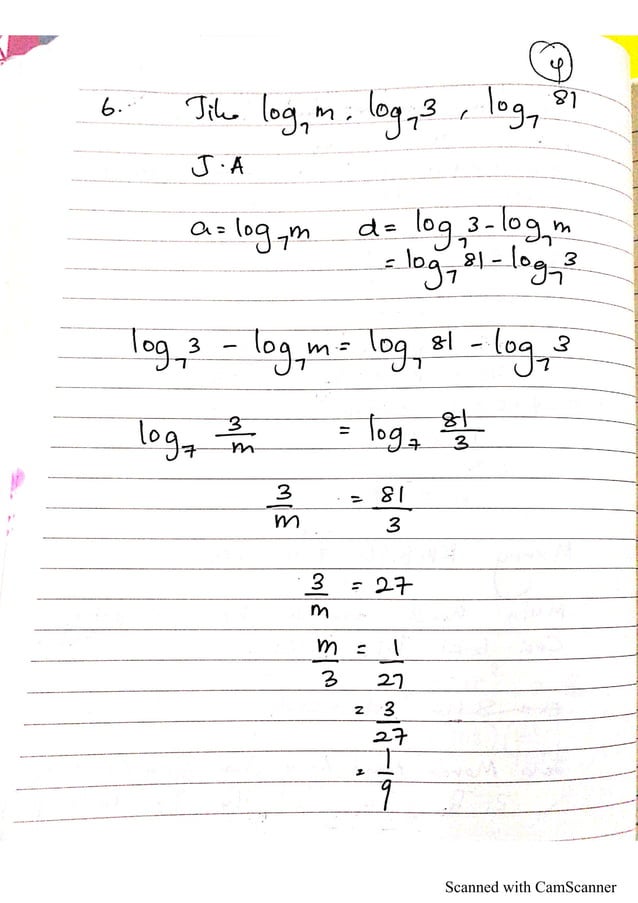 4
6. Jika log₇m, log₇3, log₇81
J.A
a = log₇m d = log₇3 - log₇m
= log₇81 - log₇3
log₇3 - log₇m = log₇81 - log₇3
log₇ 3/m = log₇ 81/3
3/m = 81/3
3/m = 27
m/3 = 1/27
= 3/27
= 1/9
Scanned with CamScanner